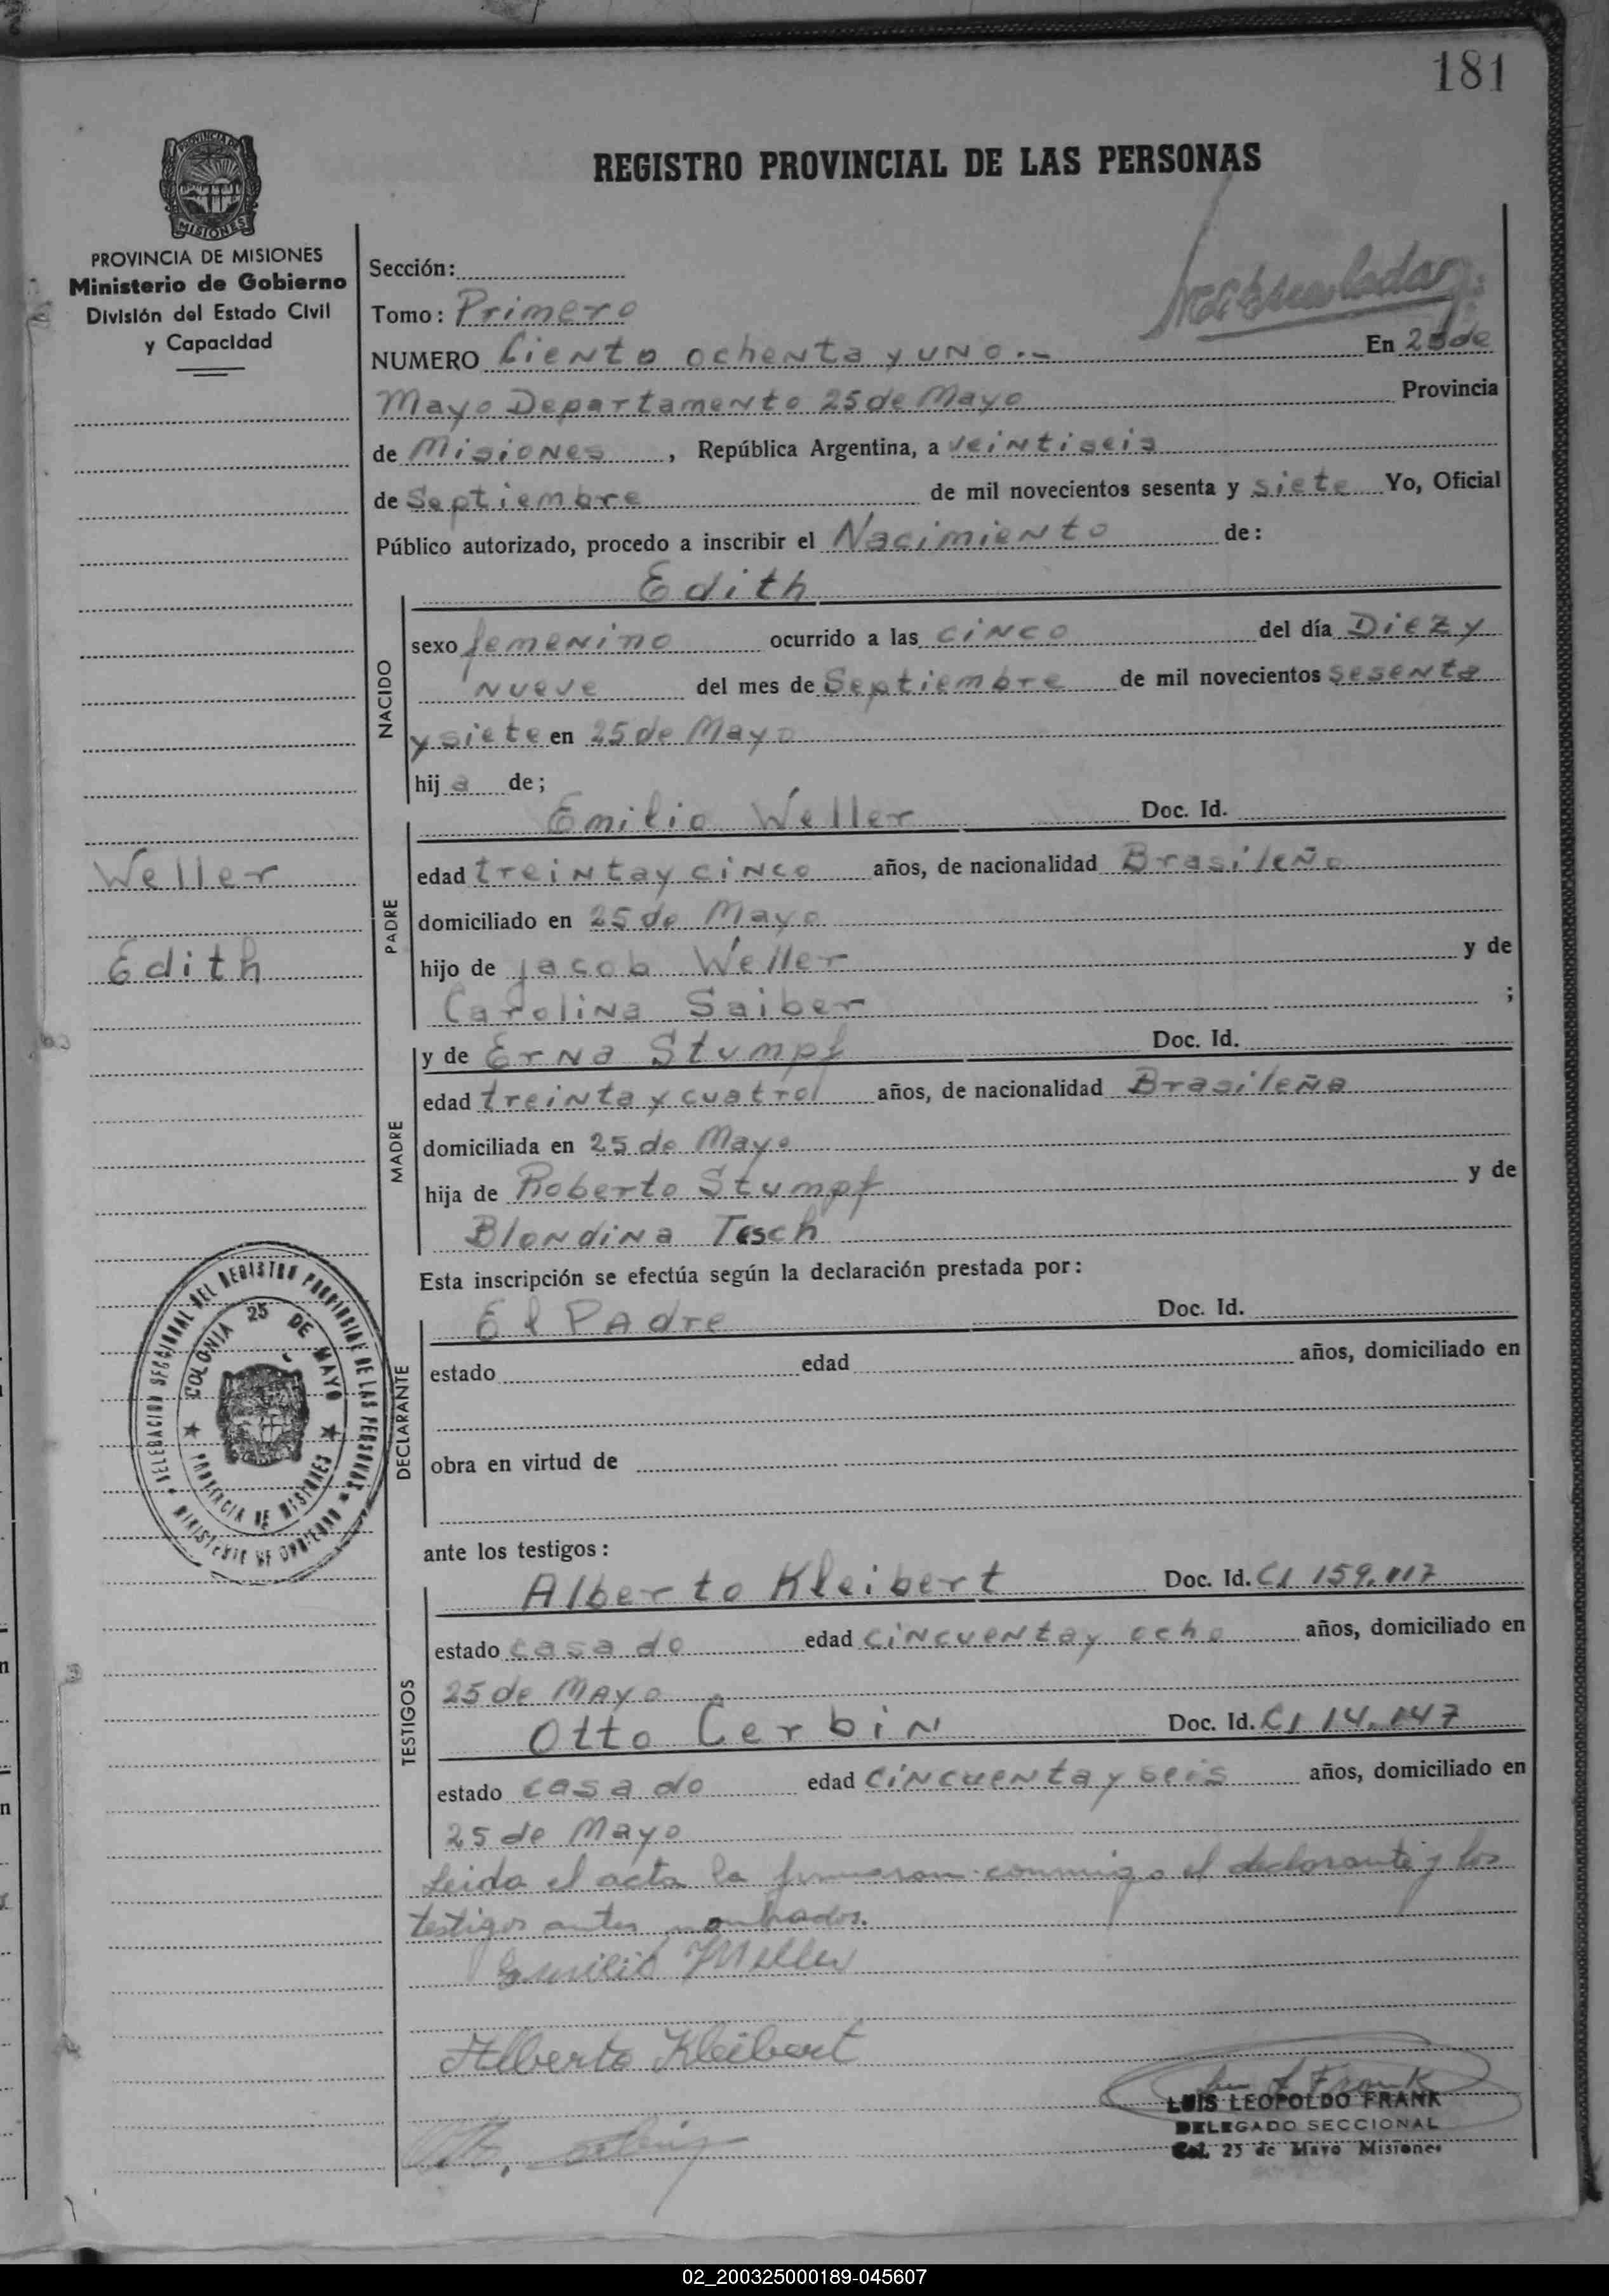 181
REGISTRO PROVINCIAL DE LAS PERSONAS
PROVINCIA DE MISIONES
Ministerio de Gobierno
División del Estado Civil
y Capacidad
Sección:
Tomo: Primero
NUMERO Ciento ochenta y uno.- En 25 de
Mayo Departamento 25 de Mayo Provincia
de Misiones, República Argentina, a veintiseis
de Septiembre de mil novecientos sesenta y siete Yo, Oficial
Público autorizado, procedo a inscribir el Nacimiento de:
Edith
NACIDO
sexo femenino ocurrido a las cinco del día Diez y
nueve del mes de Septiembre de mil novecientos sesenta
y siete en 25 de Mayo
hija de;
Emilio Weller Doc. Id.
PADRE
edad treinta y cinco años, de nacionalidad Brasileño
domiciliado en 25 de Mayo
hijo de Jacob Weller y de
Carolina Saiber ;
Weller
Edith
MADRE
y de Erna Stumpf Doc. Id.
edad treinta y cuatro años, de nacionalidad Brasileña
domiciliada en 25 de Mayo
hija de Roberto Stumpf y de
Blondina Tesch
Esta inscripción se efectúa según la declaración prestada por:
DECLARANTE
El Padre Doc. Id.
estado edad años, domiciliado en
obra en virtud de
DELEGACION SECCIONAL DEL REGISTRO PROVINCIAL DE LAS PERSONAS
MINISTERIO DE GOBIERNO
COLONIA 25 DE MAYO
PROVINCIA DE MISIONES
ante los testigos:
TESTIGOS
Alberto Kleibert Doc. Id. CI 159.117
estado casado edad cincuenta y ocho años, domiciliado en
25 de Mayo
Otto Cerbin Doc. Id. CI 14.147
estado casado edad cincuenta y seis años, domiciliado en
25 de Mayo
Leida el acta la firmaron conmigo el declarante y los
testigos antes nombrados.
Emilio Weller
Alberto Kleibert
LUIS LEOPOLDO FRANK
DELEGADO SECCIONAL
Col. 25 de Mayo Misiones
02_200325000189-045607